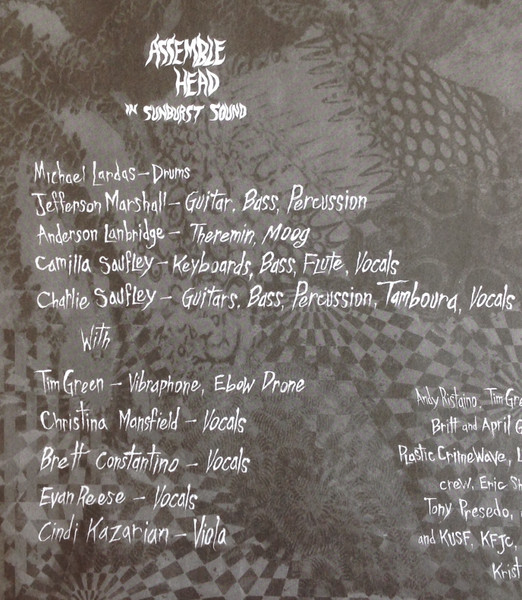 ASSEMBLE
HEAD
IN SUNBURST SOUND
Michael Lardas – Drums
Jefferson Marshall – Guitar, Bass, Percussion
Anderson Lanbridge – Theremin, Moog
Camilla Saufley – Keyboards, Bass, Flute, Vocals
Charlie Saufley – Guitars, Bass, Percussion, Tamboura, Vocals
With
Tim Green – Vibraphone, Ebow Drone
Christina Mansfield – Vocals
Brett Constantino – Vocals
Evan Reese – Vocals
Cindi Kazarian – Viola
Andy Ristaino, Tim Gre
Britt and April G
Plastic CrimeWave, L
crew, Eric Sh
Tony Presedo,
and KUSF, KFJC,
Krist